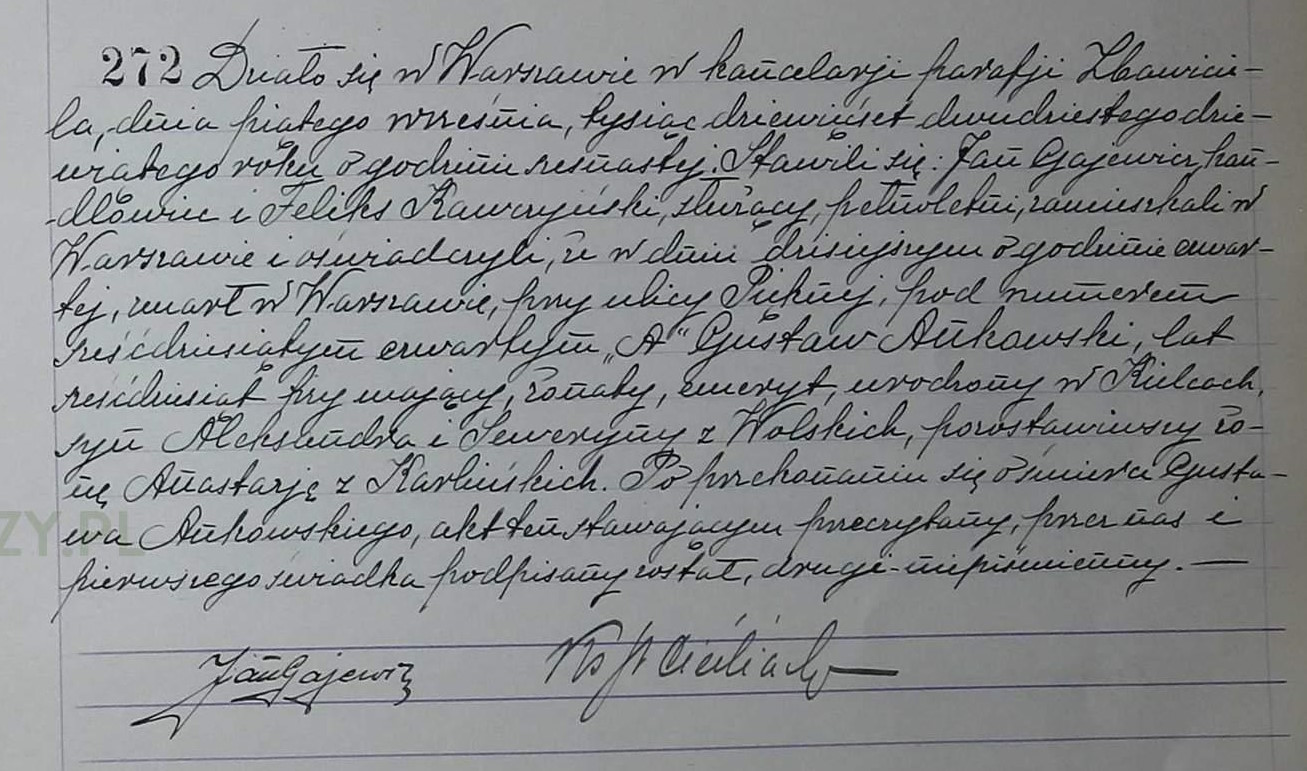 272 Działo się w Warszawie w kancelarji parafji Zbawicie-
la, dnia piątego września, tysiąc dziewiećset dwudziestego dzie-
wiątego roku o godzinie szesnastej. Stawili się: Jan Gajewicz, han-
dlowiec i Feliks Kawczyński, służący, pełnoletni, zamieszkali w
Warszawie i oświadczyli, że w dniu dzisiejszym o godzinie czwar-
tej, zmarł w Warszawie, przy ulicy Pięknej, pod numerem
sześćdziesiątym czwartym „A" Gustaw Ankowski, lat
sześćdziesiąt trzy mający, żonaty, emeryt, urodzony w Kielcach,
syn Aleksandra i Seweryny z Wolskich, pozostawiwszy żo-
nę Anastazję z Karlińskich. Po przekonaniu się o śmierci Gusta-
wa Ankowskiego, akt ten stawającym przeczytany, przez nas i
pierwszego świadka podpisany został, drugi-niepiśmienny. —
Jan Gajewicz
ZY.PL